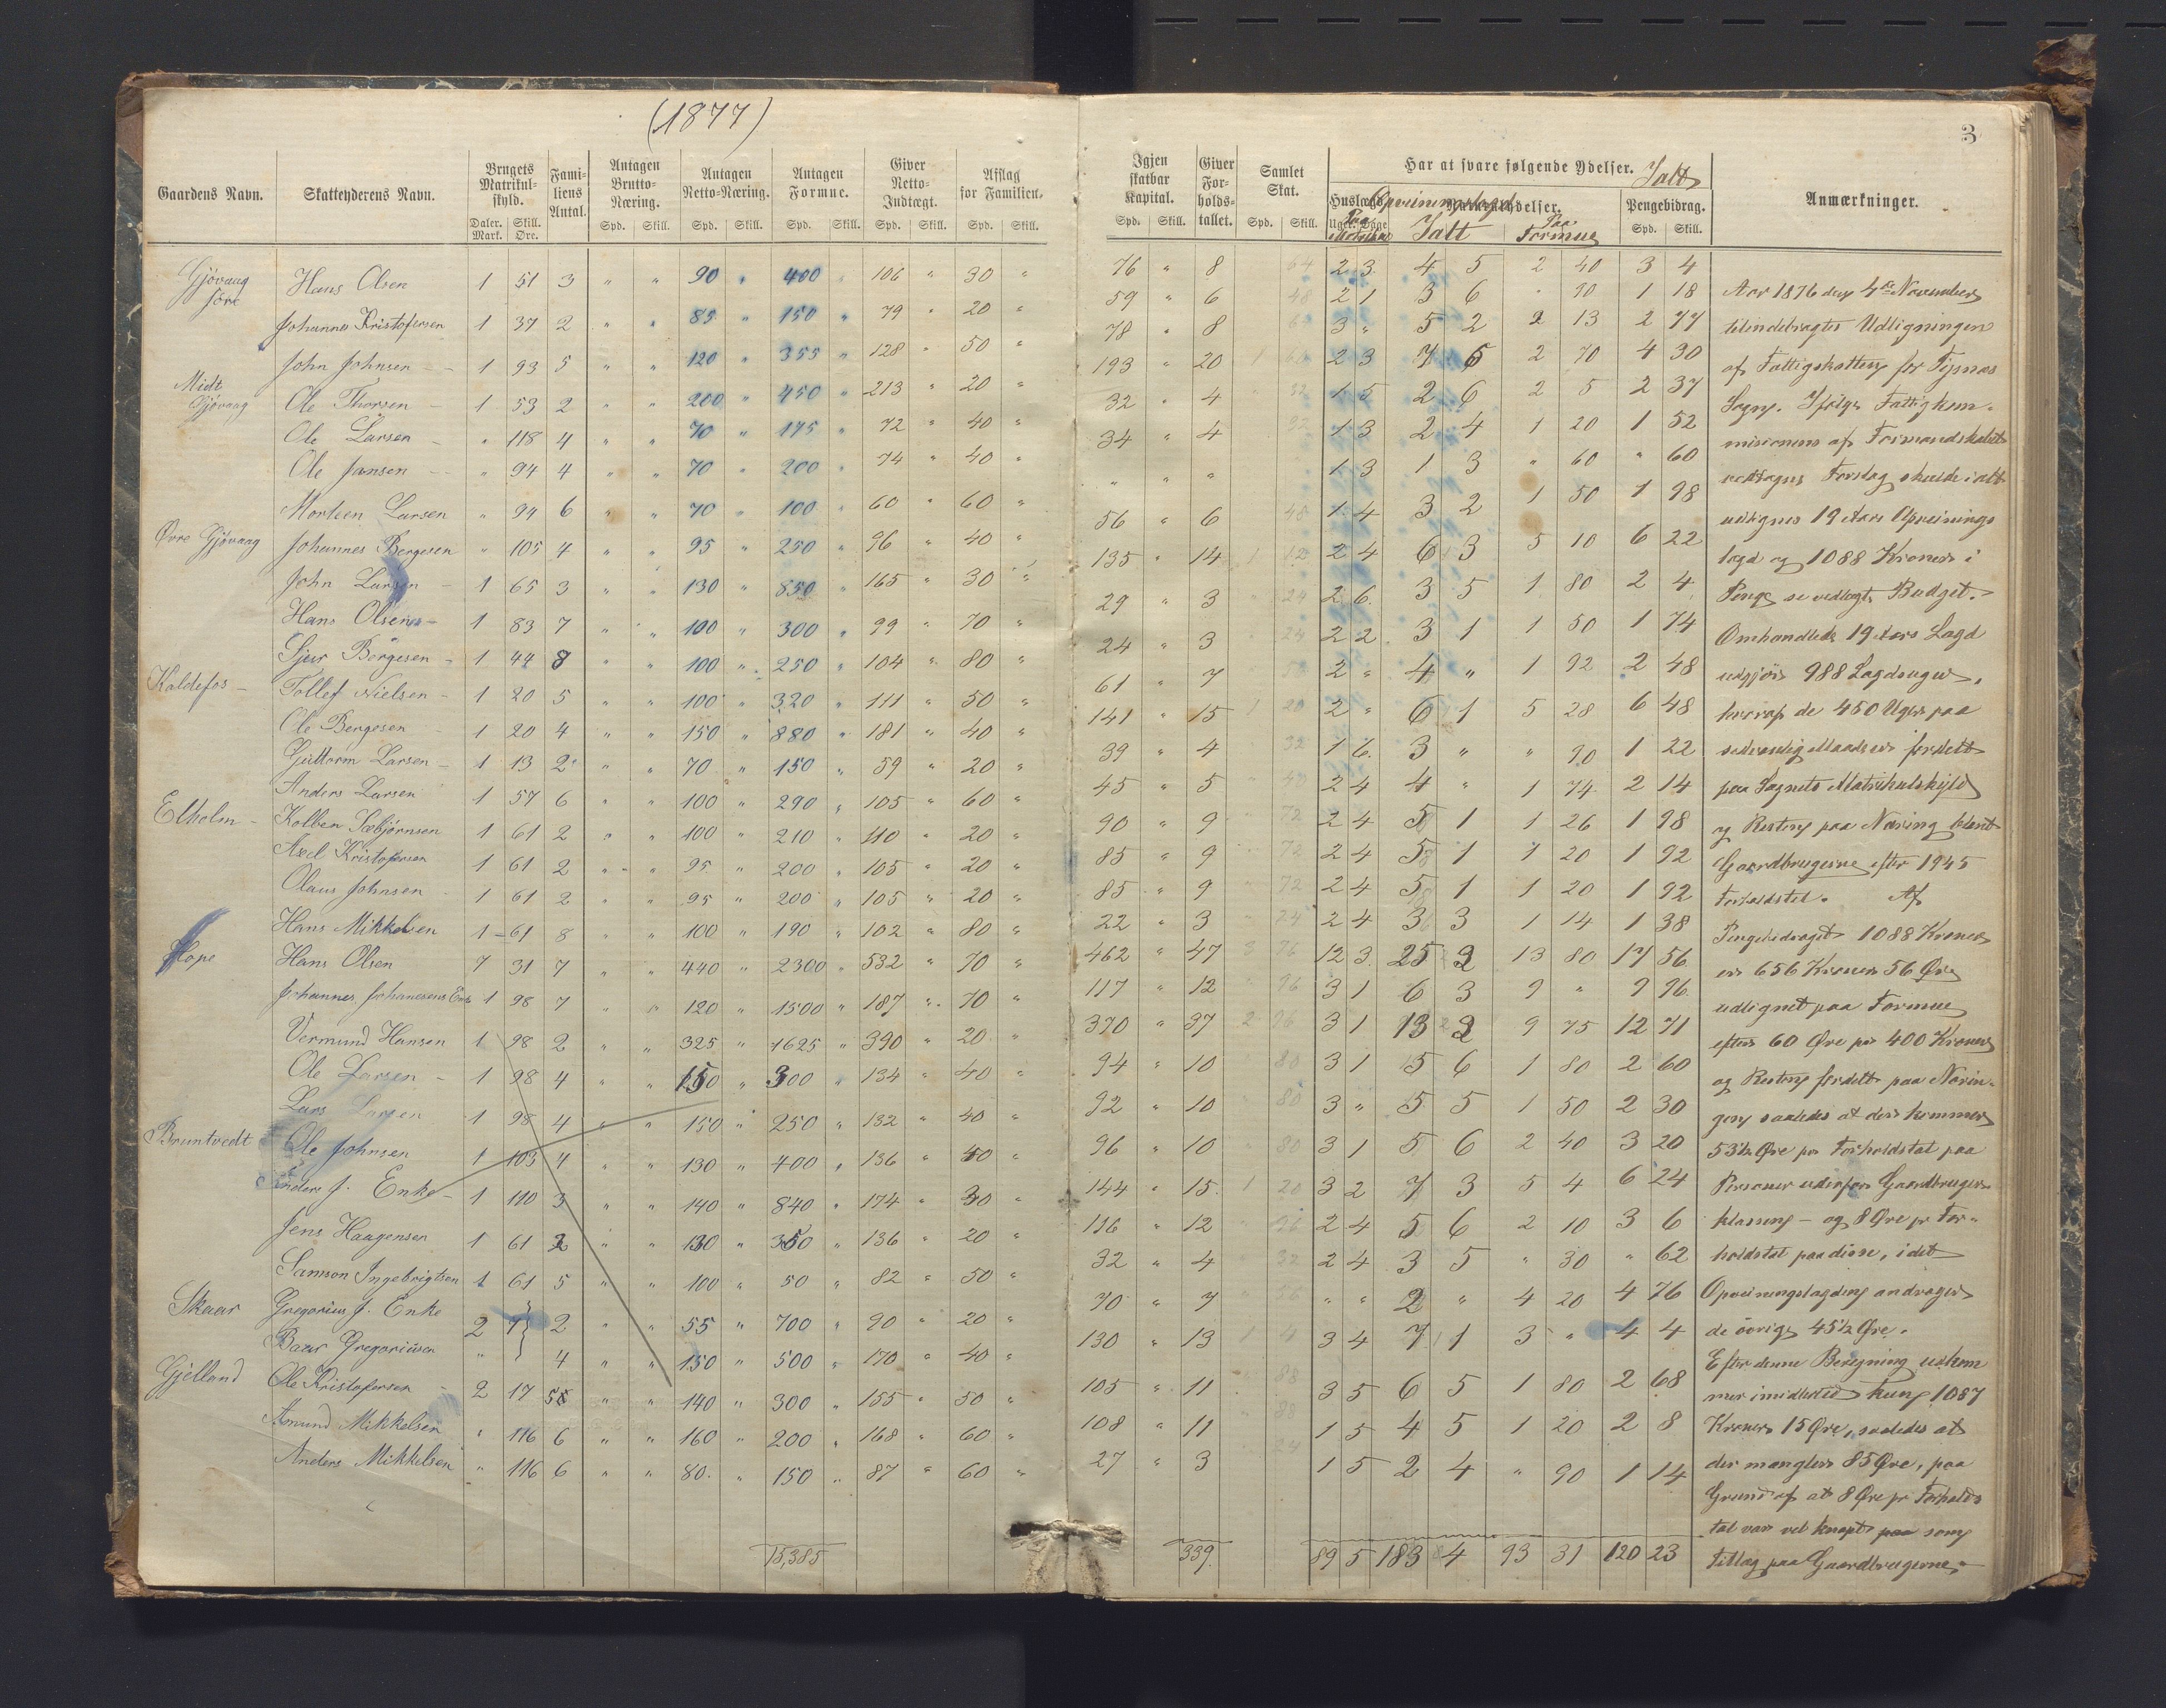 (1877)
3
Gaardens Navn. Skatteyderens Navn. Brugets Matrikul-skyld. Daler. Mark. Skill. Øre. Fami-liens Antal. Antagen Brutto-Næring. Spd. Skill. Antagen Netto-Næring. Spd. Skill. Antagen Formue. Spd. Skill. Giver Netto-Indtægt. Spd. Skill. Afslag for Familien. Spd. Skill. Igjen skatbar Kapital. Spd. Skill. Giver For-holds-tallet. Samlet Skat. Spd. Skill. Har at svare følgende Ydelser. Ialt Paa Ialt Paa Formue Pengebidrag. Spd. Skill. Anmærkninger.
Gjövaag Hans Olsen 1 51 3 " " 90 " 400 " 106 " 30 " 76 " 8 64 2 3 4 5 2 40 3 4
Johannes Kristofersen 1 37 2 " " 85 " 150 " 79 " 20 " 59 " 6 48 2 1 3 6 " 90 1 18
John Johnsen 1 93 5 " " 120 " 355 " 128 " 50 " 78 " 8 3 " 5 2 2 13 2 77
Midt Gjövaag Ole Thorsen 1 53 2 " " 200 " 450 " 213 " 20 " 193 " 20 1 60 2 3 7 5 2 70 4 30
Ole Larsen " 118 4 " " 70 " 175 " 72 " 40 " 32 " 4 32 1 5 2 6 2 5 2 37
Ole Jansen " 94 4 " " 70 " 200 " 74 " 40 " 34 " 4 1 3 2 4 1 20 1 52
Morten Larsen " 94 6 " " 70 " 100 " 60 " 60 " " " " 1 3 1 3 " 60 " 60
Øvre Gjövaag Johannes Bergesen " 105 4 " " 95 " 250 " 96 " 40 " 56 " 6 48 1 4 3 2 1 50 1 98
John Larsen 1 65 3 " " 130 " 850 " 165 " 30 " 135 " 14 1 12 2 4 6 3 5 10 6 22
Hans Olsen 1 83 7 " " 100 " 300 " 99 " 70 " 29 " 3 " 24 2 6 3 5 1 80 2 4
Sjur Bergesen 1 44 8 " " 100 " 250 " 104 " 80 " 24 " 3 24 2 2 3 1 1 50 1 74
Kaldefos Tollef Nielsen 1 20 5 " " 100 " 320 " 111 " 50 " 61 " 7 2 " 4 " 1 92 2 48
Ole Bergesen 1 20 4 " " 150 " 880 " 181 " 40 " 141 " 15 1 20 2 " 6 1 5 28 6 48
Guttorm Larsen 1 13 2 " " 70 " 150 " 59 " 20 " 39 " 4 32 1 6 3 " " 90 1 22
Anders Larsen 1 57 6 " " 100 " 290 " 105 " 60 " 45 " 5 40 2 4 4 " 1 74 2 14
Elholm Kolben Sæbjørnsen 1 61 2 " " 100 " 210 " 110 " 20 " 90 " 9 72 2 4 5 1 1 26 1 98
Axel Kristofersen 1 61 2 " " 95 " 200 " 105 " 20 " 85 " 9 72 2 4 5 1 1 20 1 92
Olaus Johnsen 1 61 2 " " 95 " 200 " 105 " 20 " 85 " 9 72 2 4 5 1 1 20 1 92
Hans Mikkelsen 1 61 8 " " 100 " 190 " 102 " 80 " 22 " 3 24 2 4 3 3 1 14 1 38
Hope Hans Olsen 7 31 7 " " 440 " 2300 " 532 " 70 " 462 " 47 3 76 12 3 25 2 13 80 17 56
Johannes Johanesens Enke 1 98 7 " " 120 " 1500 " 187 " 70 " 117 " 12 " 96 3 1 6 3 9 " 9 96
Vermund Hansen 1 98 2 " " 325 " 1625 " 390 " 20 " 370 " 37 2 96 3 1 13 2 9 75 12 71
Ole Larsen 1 98 4 " " 150 " 300 " 134 " 40 " 94 " 10 80 3 1 5 6 1 80 2 60
Lars Larsen 1 98 4 " " 150 " 250 " 132 " 40 " 92 " 10 " 80 3 " 5 5 1 50 2 30
Bruntvedt Ole Johnsen 1 103 4 " " 130 " 400 " 136 " 40 " 96 " 10 80 3 1 5 6 2 40 3 20
Anders J. Enke 1 110 3 " " 140 " 840 " 174 " 30 " 144 " 15 1 20 3 2 7 3 5 4 6 24
Jens Haagensen 1 61 2 " " 130 " 350 " 136 " 20 " 116 " 12 96 2 4 5 6 2 10 3 6
Samson Ingebrigtsen 1 61 5 " " 100 " 50 " 82 " 50 " 32 " 4 32 2 4 3 5 " 30 " 62
Skaar Gregorius J. Enke 2 7 2 " " 55 " 700 " 90 " 20 " 70 " 7 56 " " 2 " 4 20 4 76
Baar Gregoriusen " 4 " " 150 " 500 " 170 " 40 " 130 " 13 1 4 3 4 7 1 3 " 4 4
Gjelland Ole Kristofersen 2 17 5 " " 140 " 300 " 155 " 50 " 105 " 11 88 3 5 6 5 1 80 2 68
Amund Mikkelsen " 116 6 " " 160 " 200 " 168 " 60 " 108 " 11 88 1 5 4 5 1 20 2 8
Anders Mikkelsen " 116 6 " " 80 " 150 " 87 " 60 " 27 " 3 24 1 5 2 4 " 90 1 14
15,385 339. 89 5 183 4 93 31 120 23
Aar 1876 den 4de November
tilendebragtes Udligningen
af Fattigskatten for Tysnæs
Sogn. Ifølge Fattigkom-
misionens af Formandskabet
vedtagne Forslag skulde ialt
udlignes 19 Aars Opreinings
lægd og 1088 Kroner i
Penge se vedlagte Budget.
Omhandlede 19 Aars Lægd
udgjör 988 Lægdsuger,
hvoraf de 450 Uger paa
sedvanlig Maade er fordelt
paa Sognets Matrikulskyld
og Resten paa Næring blant
Gaardbrugerne efter 1945
Forholdstal. Af
Pengebidraget 1088 Kroner
er 656 Kroner 56 Øre
udlignet paa Formue
efter 60 Øre pr 400 Kroner
og Resten fordelt paa Nærin-
gen saaledes at der kommer
53½ Øre pr Forholdstal paa
Personer udenfor Gaardbruger-
klassen - og 8 Øre pr For-
holdstal paa disse, idet
Opreiningslægden andrager
de övrige 45½ Øre.
Efter denne Beregning udkom
mer imidlertid kun 1087
Kroner 15 Øre, saaledes at
der mangler 85 Øre, paa
Grund af at 8 Øre pr Forholds
tal var vel knapt paa som
tillæg paa Gaardbrugerne.